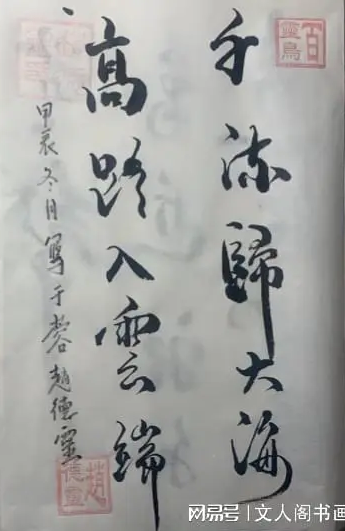 千流歸大海
高路入雲端
甲辰冬月寫于蓉趙德靈
趙德靈
网易号|文人阁书画